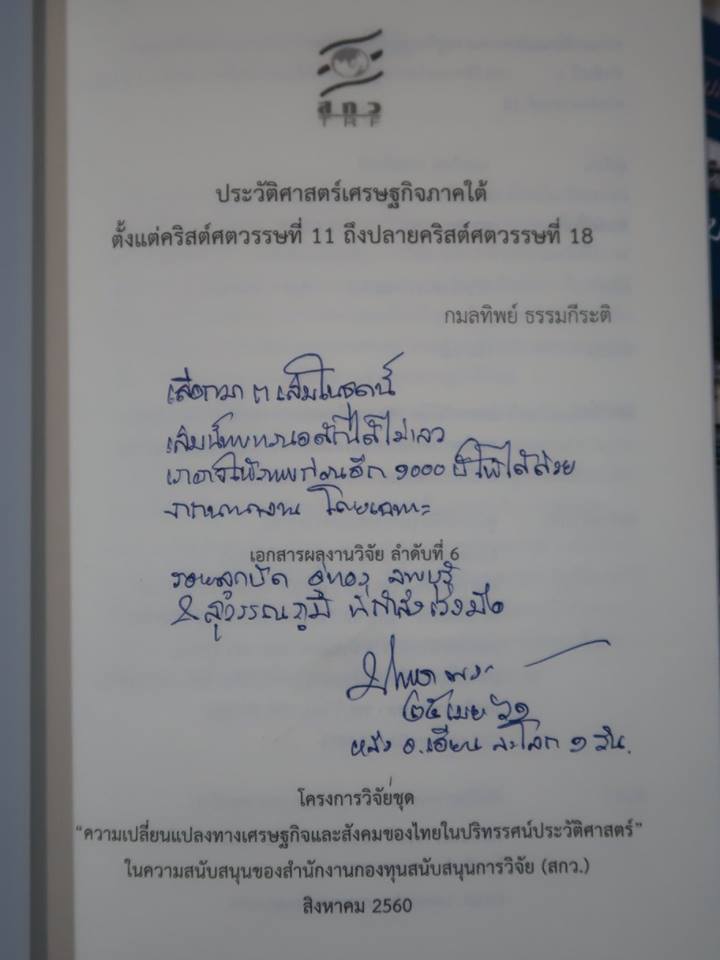 สกว
TRF
ประวัติศาสตร์เศรษฐกิจภาคใต้
ตั้งแต่คริสต์ศตวรรษที่ 11 ถึงปลายคริสต์ศตวรรษที่ 18
กมลทิพย์ ธรรมกีระติ
เลือกมา ๓ เล่มในชุดนี้
เล่มนี้
ก่อนอีก ๑๐๐๐ ปี ได้ด้วย
โดยเฉพาะ
เอกสารผลงานวิจัย ลำดับที่ 6
ลูกปัด อู่ทอง ลพบุรี
& สุวรรณภูมิ ที่กำลังลงมือ
๒๕ เมย ๖๑
หลัง อ.เอียน ละโลก ๑ วัน.
โครงการวิจัยชุด
“ความเปลี่ยนแปลงทางเศรษฐกิจและสังคมของไทยในปริทรรศน์ประวัติศาสตร์”
ในความสนับสนุนของสำนักงานกองทุนสนับสนุนการวิจัย (สกว.)
สิงหาคม 2560